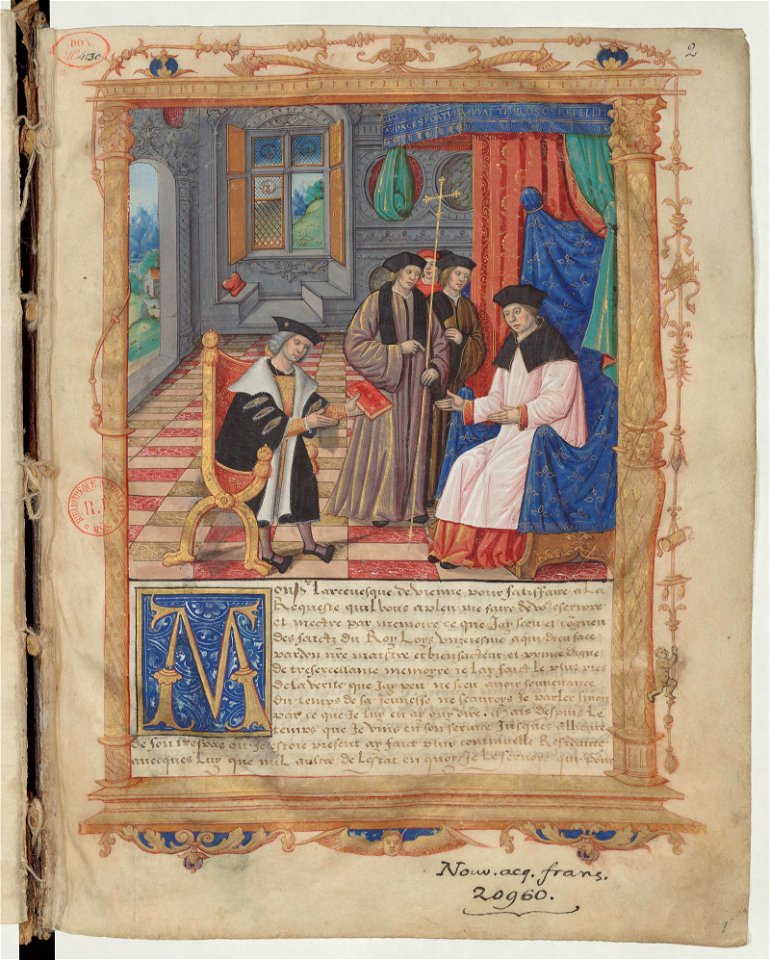 DON.
4130
2
AUDACES FORTU IUVAT TIMIDOSQ REPELLI
BIBLIOTHEQUE
R.F.
Mons.r Larcevesque de vienne pour satisfaire a la
Requeste quil vous a pleu me faire de vo9 escripre
et mectre par memoire ce que Jay sceu et cogneu
des faictz du Roy Loys unziesme a qui dieu face
pardon nre maistre et bienfacteur et prince digne
de tresexcellante memoyre Je Lay faict Le plus pres
de La verite que Jay peu ne sceu avoir souvenance
Du temps de sa Jeunesse ne scauroys Je parler sinon
par ce que Je Luy en ay ouy dire. Mais despuis Le
temps que Je vins en son service Jusques a lheure
de son trespas ou Jestoie present ay faict plus continuelle Residance
avecques Luy que nul aultre de Lestat en quoy Je Le servoys qui pour
Nouv. acq. franç.
20960.